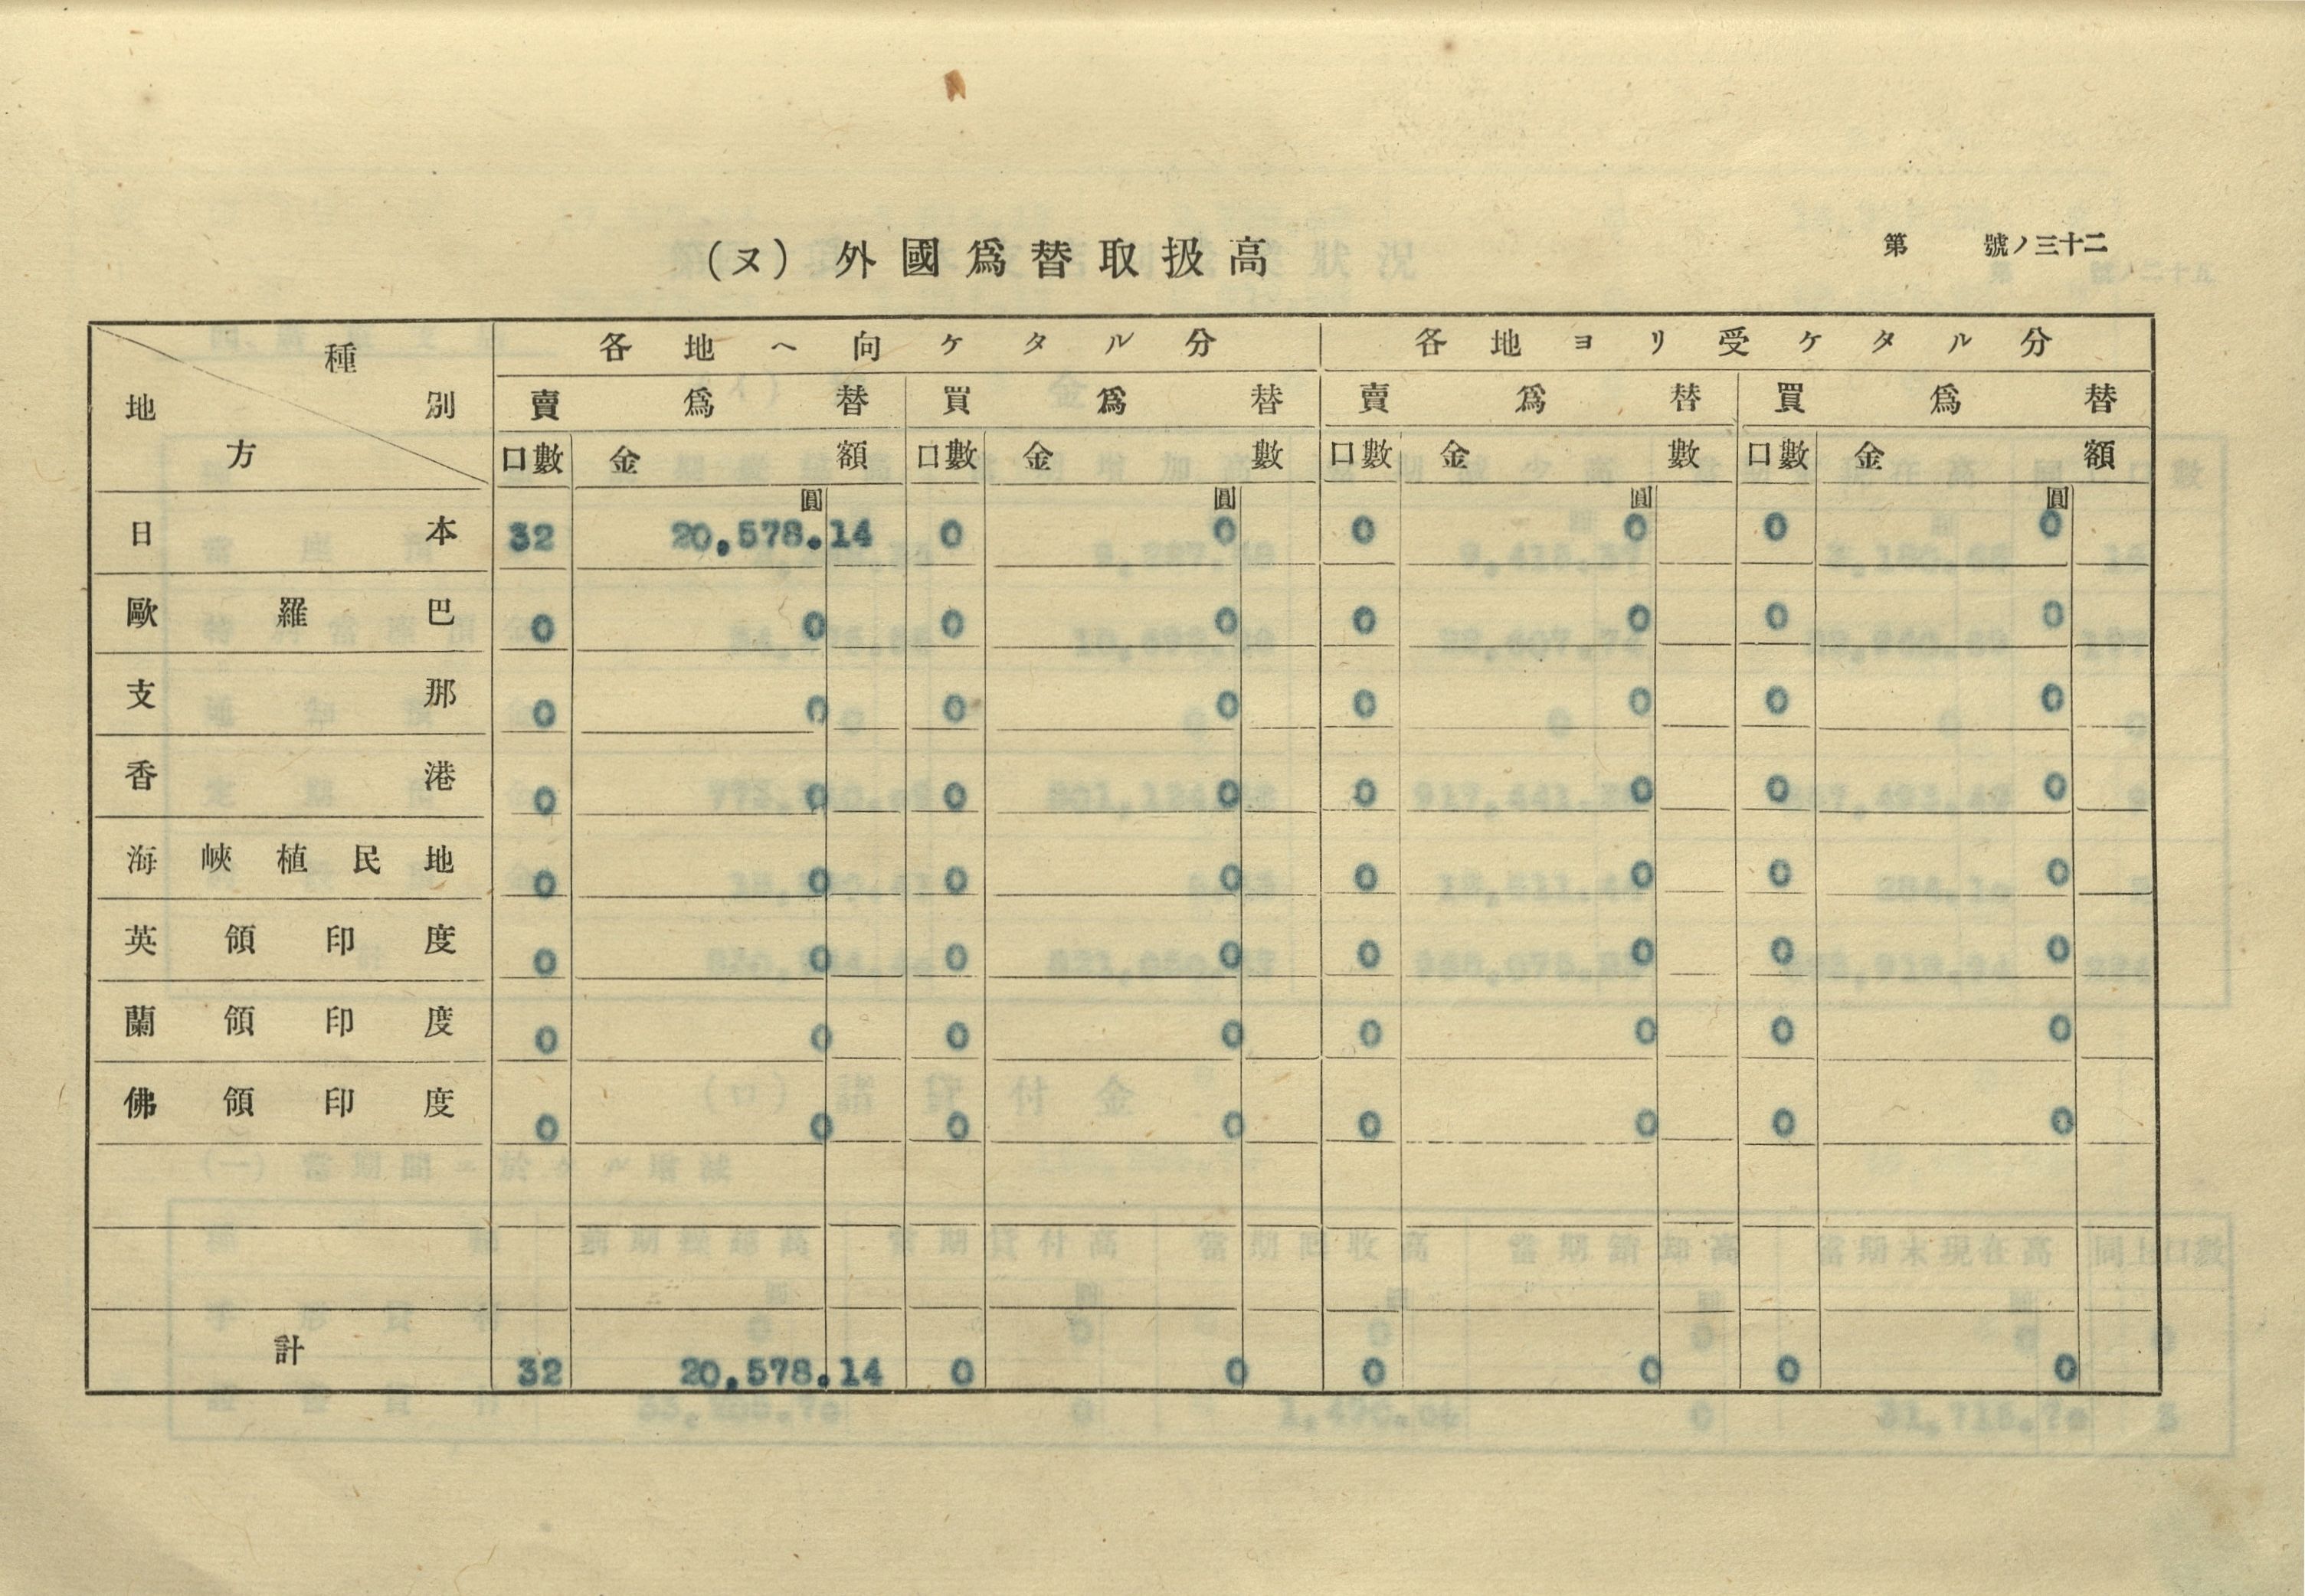 (ヌ) 外國爲替取扱高
第 號ノ三十二
種別 地方 各地ヘ向ケタル分 各地ヨリ受ケタル分
賣爲替 買爲替 賣爲替 買爲替
口數 金額 口數 金數 口數 金數 口數 金額
圓 圓 圓 圓
日本 32 20,578.14 0 0 0 0 0 0
歐羅巴 0 0 0 0 0 0 0 0
支那 0 0 0 0 0 0 0 0
香港 0 0 0 0 0 0 0 0
海峽植民地 0 0 0 0 0 0 0 0
英領印度 0 0 0 0 0 0 0 0
蘭領印度 0 0 0 0 0 0 0 0
佛領印度 0 0 0 0 0 0 0 0
計 32 20,578.14 0 0 0 0 0 0